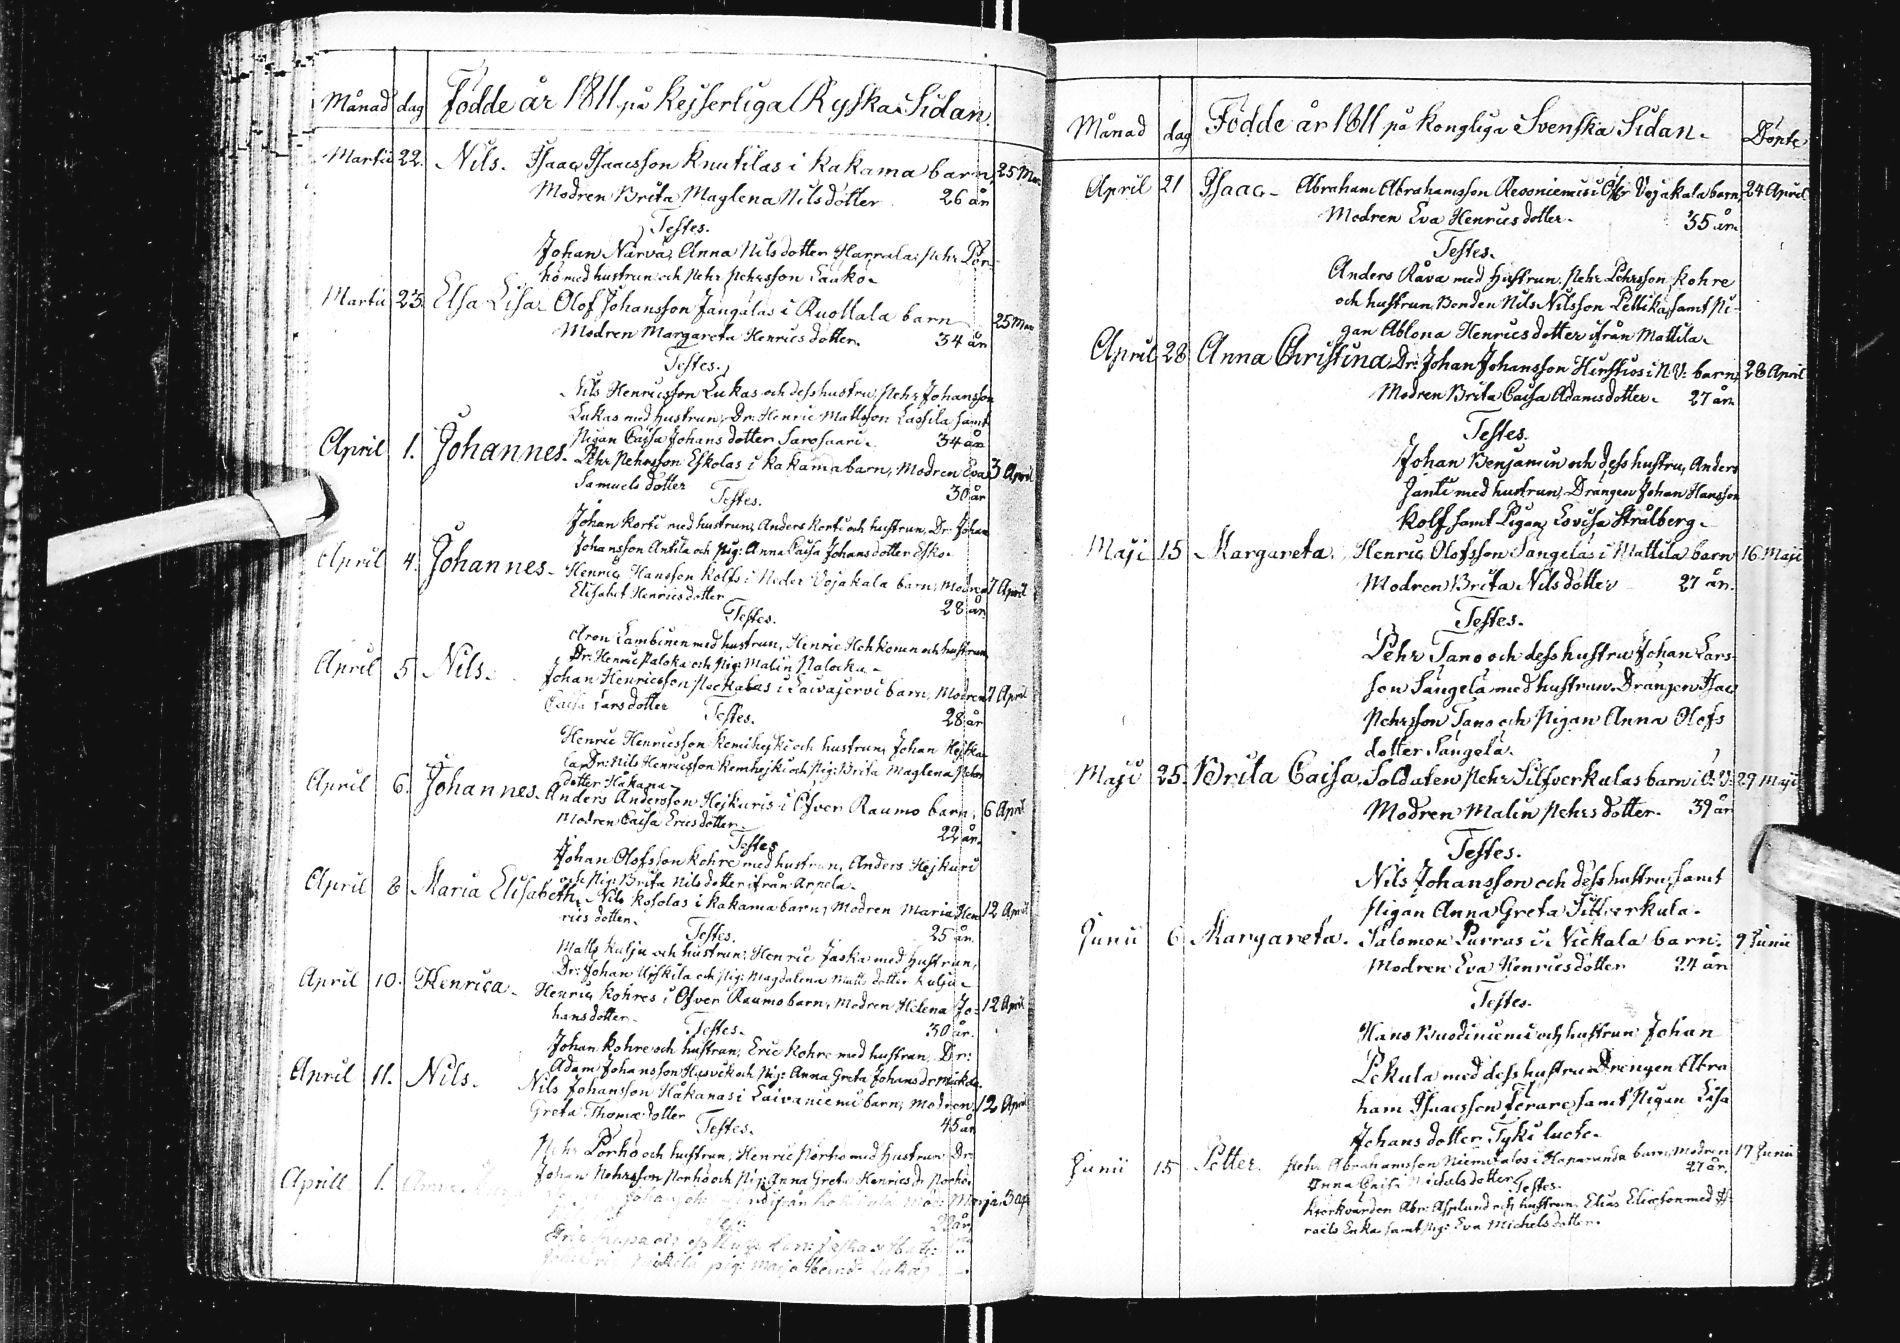 Månad dag Födde år 1811 på Kejserliga Ryska Sidan.
Martii 22. Nils. Isaac Isaacsson Knutilas i Kakama barn, 25 Mar
Modren Brita Maglena Nils dotter 26 år
Testes.
Johan Narva, Anna Nils dotter Harrala, Pehr Por-
hö med hustrun och Pehr Pehrsson Laako.
Martii 23. Elsa Lisa. Olof Johansson Jangälas i Ruottala barn 25 Mar
Modren Margareta Henrics dotter. 34 år
Testes.
Nils Henricsson Lukas och dess hustru, Pehr Johansson
Lukas med hustrun, Dr. Henric Mattsson Lassila samt
Pigan Caisa Johans dotter Sarosaari. 34 år
April 1. Johannes. Pehr Pehrsson Eskolas i Kakama barn, Modren Eva 3 April
Samuels dotter 30 år
Testes.
Johan Korti med hustrun, Anders Korti och hustrun, Dr. Johan
Johansson Antila och Pig: Anna Caisa Johans dotter Esko.
April 4. Johannes. Henric Hansson Kolfs i Neder Vojakala barn, Modren 7 April
Elisabet Henrics dotter 28 år
Testes.
Aron Lambinen med hustrun, Henric Hehkonen och hustrun,
Dr. Henric Paloka och Pig: Malin Palocka.
April 5 Nils. Johan Henricsson i Laivajervi barn, Modren 7 April
Caisa Lars dotter 28 år
Testes.
Henric Henricsson Kemihejki och hustrun, Johan
la, Dr. Nils Henricsson Kemihejki och Pig: Brita Maglena Pehrs
dotter Håkana.
April 6. Johannes. Anders Andersson Hejkuris i Öfver Raumo barn, 6 April
Modren Caisa Erics dotter. 22 år.
Testes
Johan Olofsson Kohre med hustrun, Anders Hejkuri
och Pig: Brita Nils dotter ifrån Arpela.
April 8 Maria Elisabeth. Nils Kosolas i Kakama barn, Modren Maria Hen 12 April
rics dotter. 25 år.
Testes.
Matts Kulju och hustrun, Henric Jaska med hustrun,
Dr: Johan och Pig: Magdalena Matts dotter Kulju.
April 10. Henrica. Henric Kohres i Öfver Raumo barn, Modren Helena Jo- 12 April
hans dotter. 30 år.
Testes.
Johan Kohre och hustrun, Eric Kohre med hustrun, Dr:
Adam Johansson och Pig: Anna Greta Johans dr
April 11. Nils. Nils Johansson Håkanas i Laivaniemi barn, Modren 12 April
Greta Thomæ dotter 45 år
Testes.
Pehr Pörhö och hustrun, Henric Pörhö med hustrun Dr
Johan Pehrsson Pörhö och Pig: Anna Greta Henrics dr Pörhö.
Aprill 1. Anna Maria 5 ap
22 år
Månad dag Födde år 1811 på Kongliga Svenska Sidan. Döpte
April 21 Isaac. Abraham Abrahamsson i Öfr Vojakala barn, 24 April
Modren Eva Henrics dotter. 35 år.
Testes.
Anders Råva med hustrun, Pehr Pehrsson Kohre
och hustrun, Bonden Nils Nilsson Pellika, samt Pi-
gan Ablona Henrics dotter ifrån Mattila.
April 28 Anna Christina. Dr. Johan Johansson i N: V: barn, 28 April
Modren Brita Caisa Adams dotter. 27 år.
Testes.
Johan Benjamin och dess hustru, Anders
Janti med hustrun, Drängen Johan Hansson
Kolf samt Pigan Lovisa Strålberg.
Maji 15 Margareta. Henric Olofsson Sangelas i Mattila barn 16 Maji
Modren Brita Nils dotter 27 år.
Testes.
Pehr Tano och dess hustru Johan Lars-
son Sangela med hustrun. Drängen Isac
Pehrsson Tano och Pigan Anna Olofs
dotter Sangela.
Maji 25. Brita Caisa. Soldaten Pehr Silfverkulas barn i Ö: V: 29 Maji
Modren Malin Pehrs dotter. 39 år
Testes.
Nils Johansson och dess hustru, samt
Pigan Anna Greta Silfverkula.
Junii 6 Margareta. Salomon Purras i Nickala barn. 9 Junii
Modren Eva Henrics dotter 24 år
Testes.
Hans Buodiniemi och hustrun Johan
Pekula med dess hustru Drengen Abra
ham Isaacsson Ferare samt Pigan Lisa
Johans dotter Tykiluoto.
Junii 15 Petter. Pehr Abrahamsson Niemitalos i Haparanda barn, modren 17 Junii
Anna Caisa Michels dotter 27 år.
Testes.
Kyrkvärden Abr: Asplund och hustrun, Elias Eliesson med Is
raels Enka samt Pig: Eva Michels dotter.